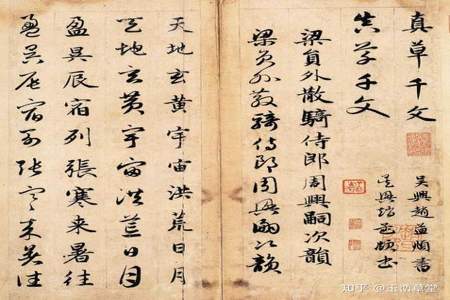 真草千文
吴興趙孟頫書
真草千文
吴興趙孟頫書
梁員外散騎侍郎周興嗣次韻
梁員外散騎侍郎周興嗣次韻
天地玄黄宇宙洪荒日月
天地玄黄宇宙洪荒日月
盈昃辰宿列張寒来暑往
盈昃辰宿列張寒来暑往
知乎 @玉浩草堂